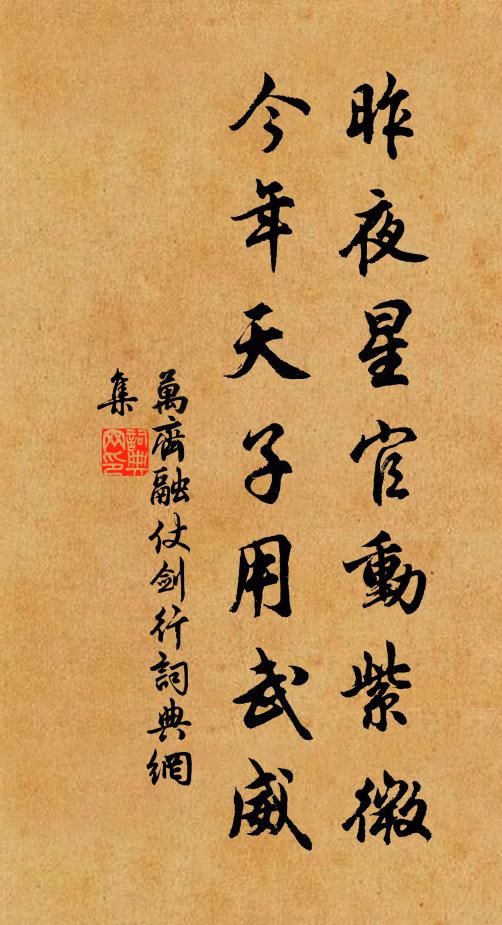 昨夜星官動紫微
今年天子用武威
萬齊融仗劍行詞典網
集
詞典
网印